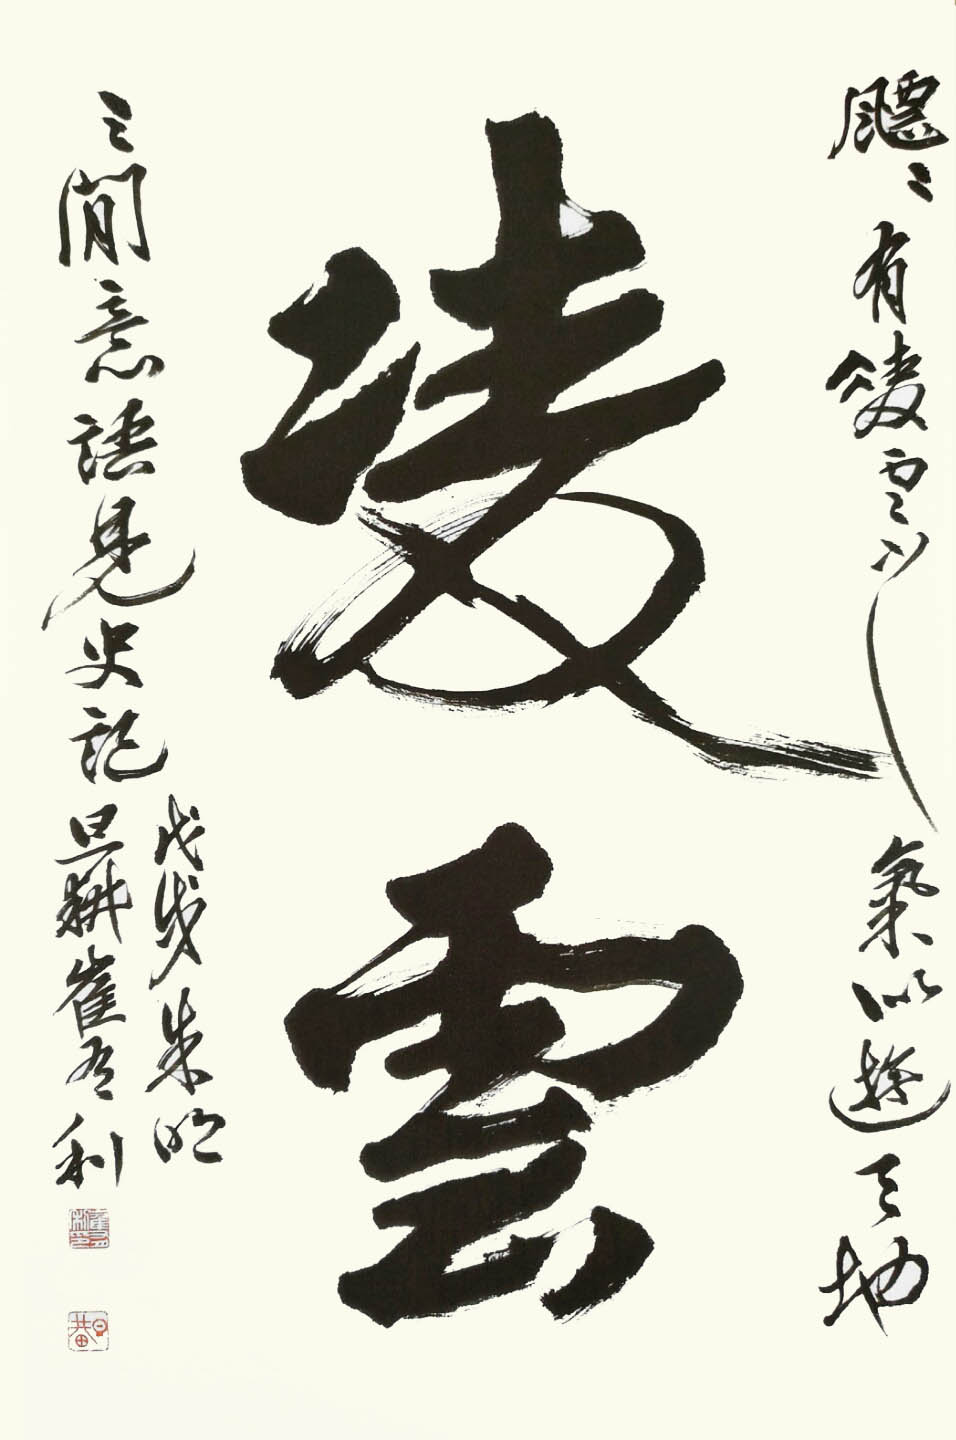 飄〻有凌雲之氣似遊天地
凌雲
之閒意語見史記
戊戌朱明
旦耕崔利